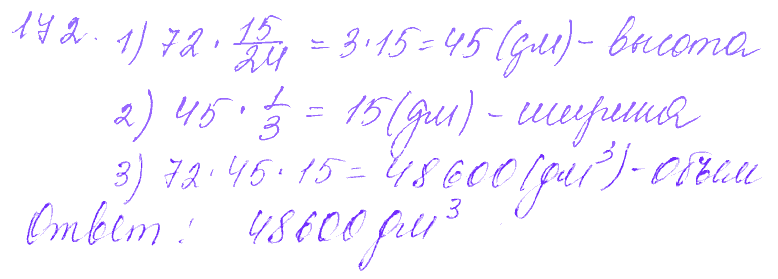 172. 1) 72 · 15/24 = 3 · 15 = 45 (дм) - высота
2) 45 · 1/3 = 15 (дм) - ширина
3) 72 · 45 · 15 = 48600 (дм³) - объем
Ответ: 48600 дм³